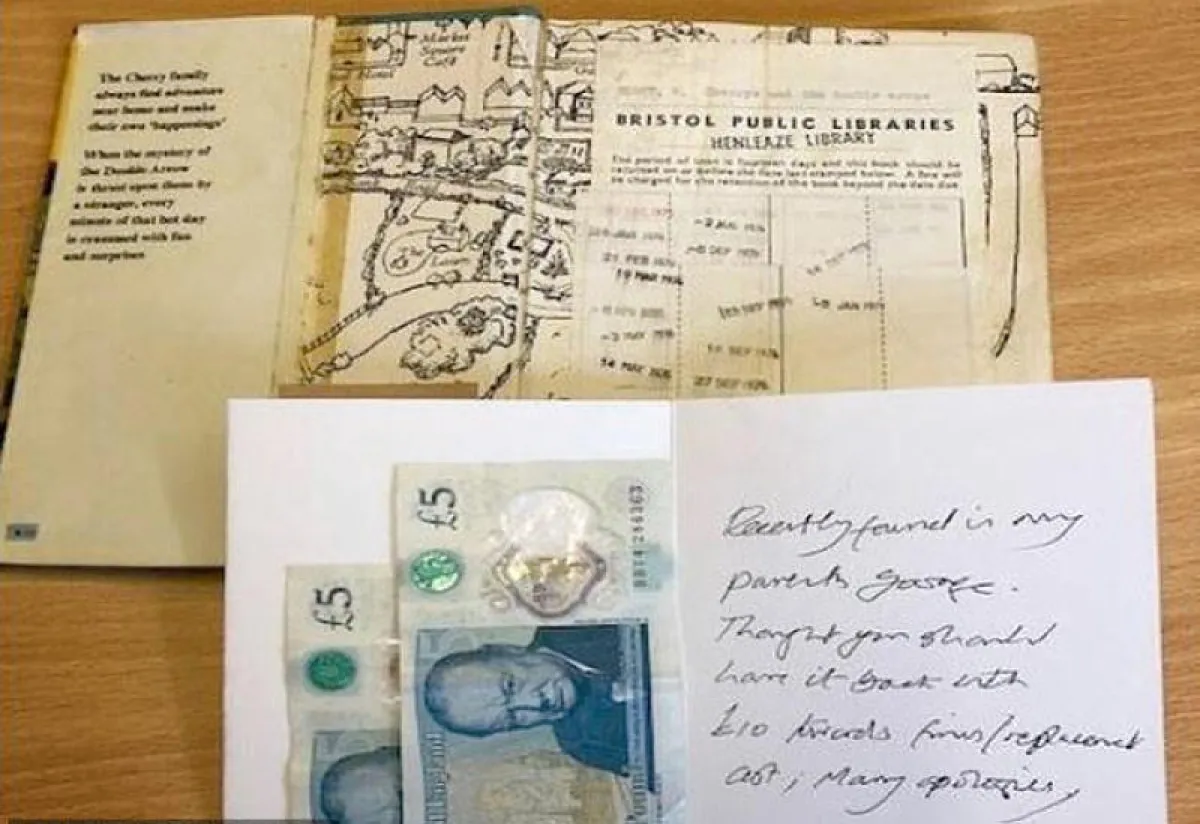 The Cherry family
always find adventure
near home and make
their own 'happenings'
When the mystery of
the Double Arrow
is thrust upon them by
a stranger, every
minute of that hot day
is crammed with fun
and surprises
Market
Square
Café
Hotel
Cherrys and the double arrow
BRISTOL PUBLIC LIBRARIES
HENLEAZE LIBRARY
The period of loan is fourteen days and this book should be
returned on or before the date last stamped below. A fine will
be charged for the retention of the book beyond the date due
21 FEB 1976
19 MAR 1976
-3 MAY 1976
14 MAY 1976
-2 AUG 1976
-8 SEP 1976
27 SEP 1976
£5
£5
BB14 266363
Recently found in my
parents garage.
Thought you should
have it back with
£10 towards fines/replacement
cost; Many apologies,